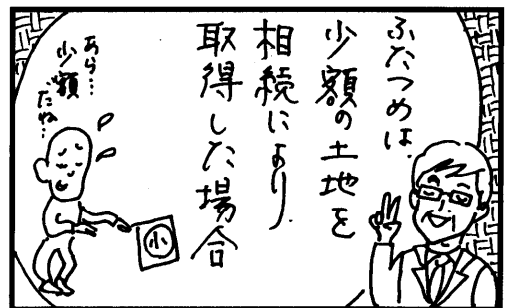 ふたつめは、
少額の土地を
相続により、
取得した場合
あら…
少額
だね…
小